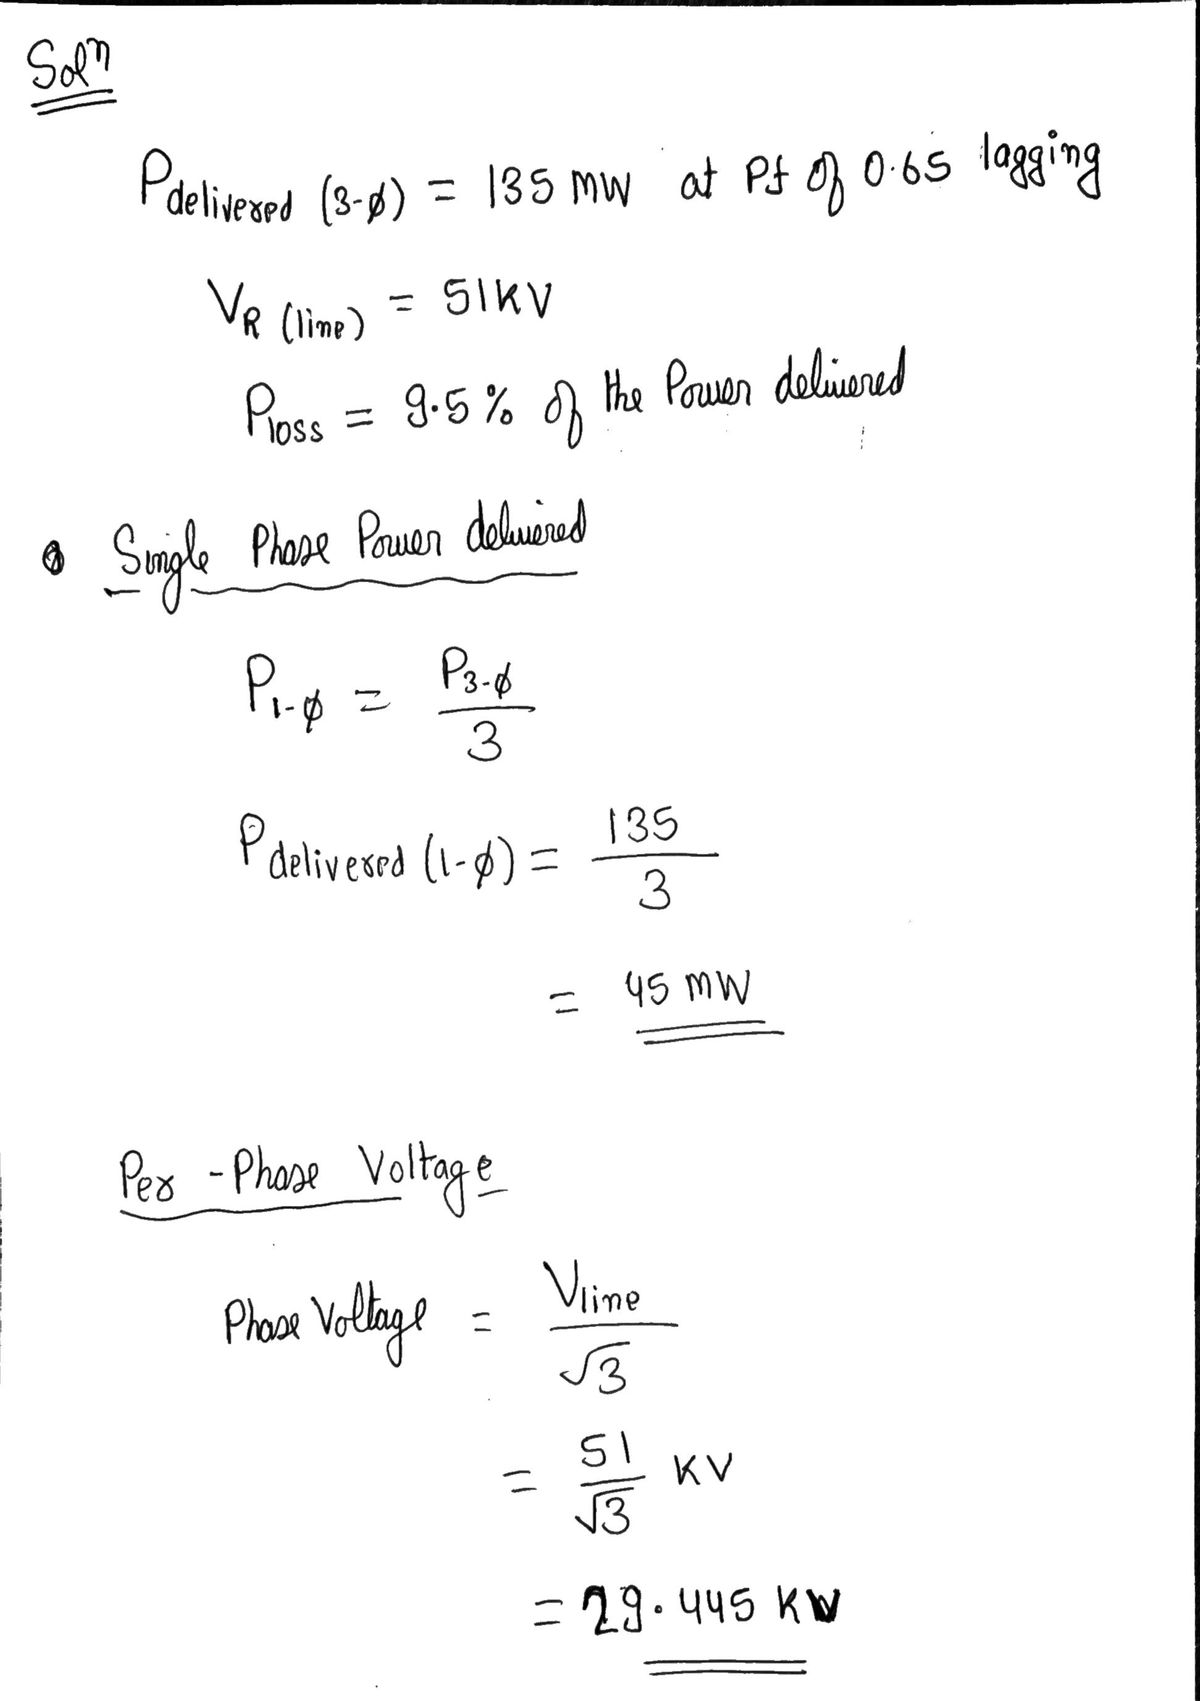 Solⁿ
Pdelivered (3-ϕ) = 135 MW at Pf of 0.65 lagging
VR (line) = 51KV
Ploss = 9.5% of the Power delivered
Single Phase Power delivered
P1-ϕ = P3-ϕ / 3
Pdelivered (1-ϕ) = 135 / 3
= 45 MW
Per - Phase Voltage
Phase Voltage = Vline / √3
= 51 / √3 KV
= 29.445 KV